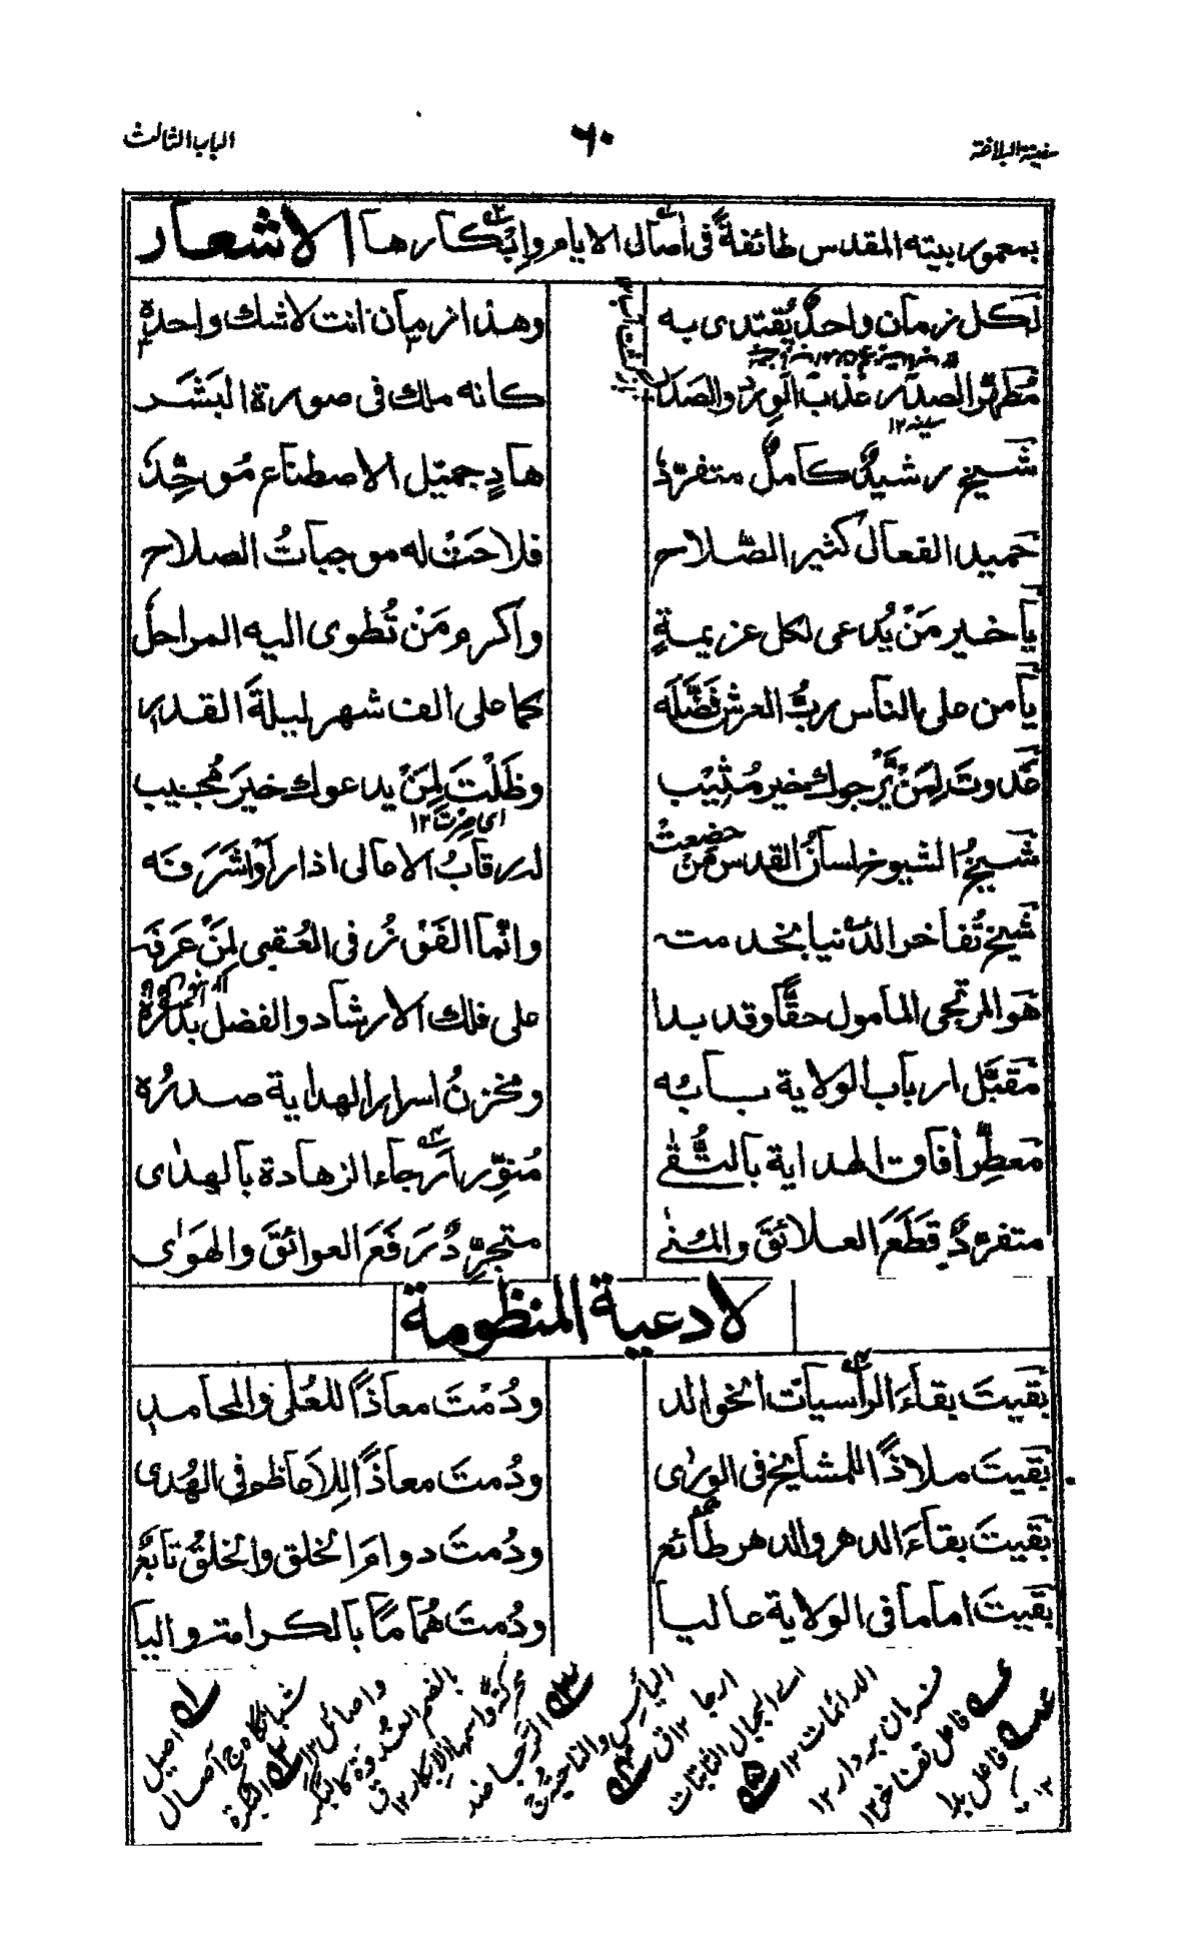 سفينة البلاغة ٦٠ الباب الثالث
بمعمور بيته المقدس طائفةً فى اٰصال الايام وابكارها الاشعار
لكل زمان واحدٌ يُقتدى به وهذا زمان انت لا شك واحدهٗ
مُطهّرُ الصدر عذبُ الوِردِ والصدر كانه ملك فى صورة البَشَر
سينه١٢
شَيخ رشيدٌ كاملٌ متفرّدٌ هادٍ جميل الاصطناع مُوحِّدٌ
حميد الفعال كثير الصّلاح فلاحتْ له موجباتُ الصلاح
يا خير مَنْ يُدعى لكل عزيمةٍ واكرم مَنْ تُطوى اليه المراحلُ
يا من على الناس ربُّ العرش فَضَّلَه كما على الف شهر ليلةَ القدر
غدوتَ لِمَنْ يَّرجوك خير مُثِيْب وظَلْتَ لِمَنْ يدعوك خيرَ مُجيب
اى صرت ١٢
شيخُ الشيوخ لسانُ القدس مَنْ خضعتْ له رقابُ الاعالى اذ راَوْا شَرَفَه
شيخ تُفاخر الدُّنيا بخدمته وانّما الفَوْزُ فى العُقبى لِمَنْ عَرَفَه
هو المرتجى المامول حقًّا وقد بدا على فلك الارشاد والفضل بَدْرُهٗ
مقبَّل ارباب الولاية بابُه ومخزنُ اسرار الهداية صدرُه
معطِّر اٰفاق الهداية بالتُّقٰى مُنوِّر ارجاء الزهادة بالهدٰى
متفرّدٌ قَطَعَ العلائقَ والمُنٰى متجرّدٌ رَفَعَ العوائقَ والهَوٰى
الادعية المنظومة
بقيتَ بقاءَ الراسيات الخوالد ودُمْتَ معاذًا للعُلٰى والمحامد
بقيتَ ملاذًا للمشايخ فى الورٰى ودُمتَ معاذًا للاعاظم فى الهُدى
بقيتَ بقاءَ الدهر والدهر طائع ودُمتَ دوامَ الخلق والخلقُ تابعُ
بقيتَ اماما فى الولاية عاليا ودُمتَ هُمامًا بالكرامة واليا
اصيل شبانگاه ج آصال واصائل ١٢
البكرة بالضم الغدوة كالبكر محركةً واسمها الابكار ١٢ ق
الرجا ضد اليأس والناحية
ارجا ١٢ ق
اے الجبال الثابتات الدائمات ١٢
فرمان بردار ١٢
فاعل تفاخر ١٢
فاعل بدا ١٢